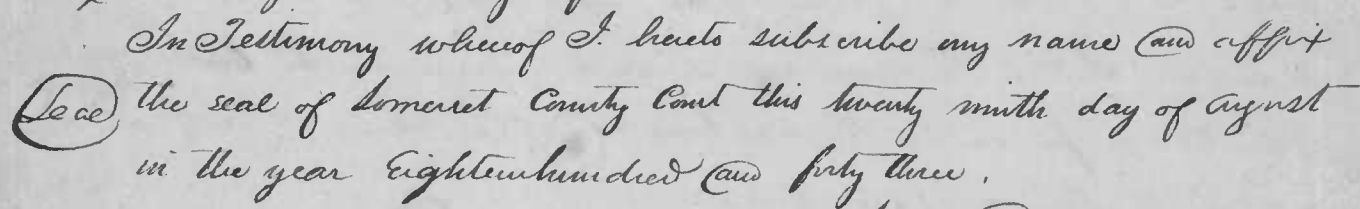 In Testimony whereof I. hereto subscribe my name and affix
Seal the seal of Somerset County Court this twenty ninth day of August
in the year Eighteenhundred and forty three.